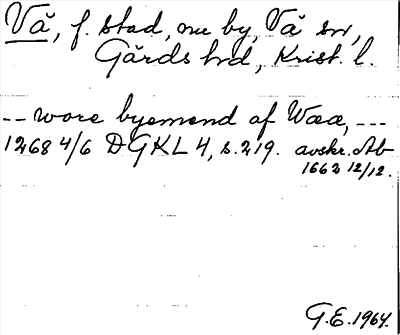 Vä, f. stad, nu by, Vä sn,
Gärds hd, Krist. l.
-- wore byemend af Wææ, ---
1268 4/6 DGKL 4, s. 219. avskr. Ab
1662 12/12.
G.E. 1964.